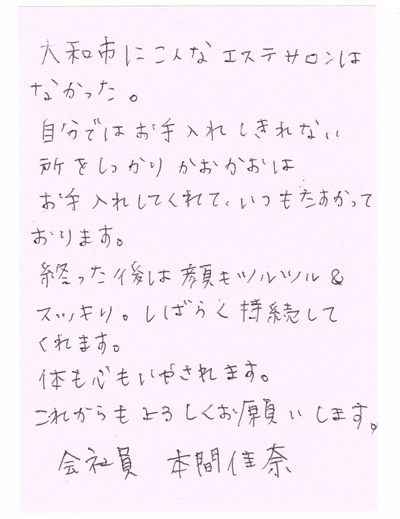 大和市にこんなエステサロンは
なかった。
自分ではお手入れしきれない
所をしっかりかおかおは
お手入れしてくれて、いつもたすかって
おります。
終った後は顔もツルツル&
スッキリ。しばらく持続して
くれます。
体も心もいやされます。
これからもよろしくお願いします。
会社員 本間佳奈